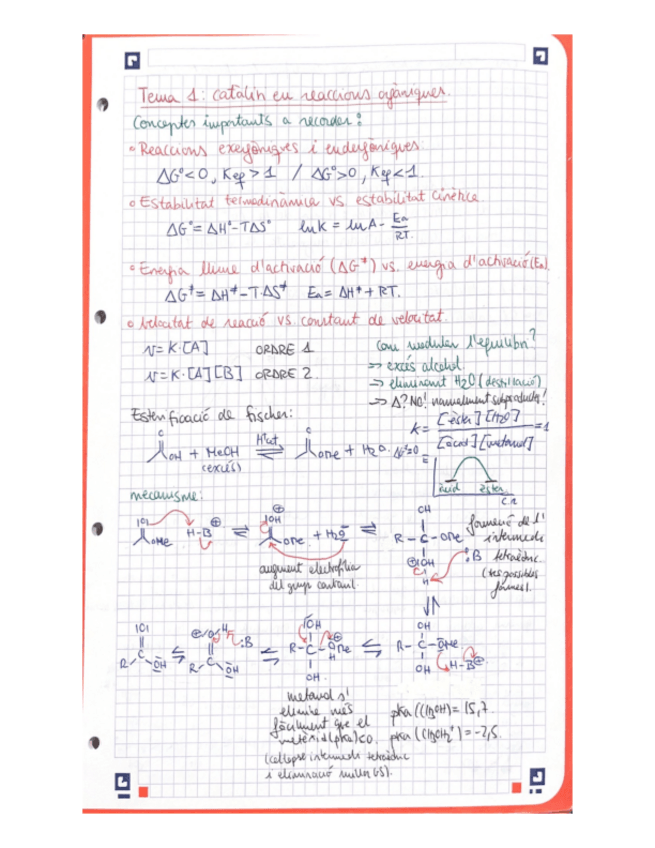 Tema 1: catàlisi en reaccions orgàniques.
Conceptes importants a recordar:
• Reaccions exergòniques i endergòniques:
ΔG°<0, Keq>1 / ΔG°>0, Keq<1.
• Estabilitat termodinàmica vs estabilitat cinètica
ΔG°=ΔH°-TΔS° lnK = lnA - Ea/RT.
• Energia lliure d'activació (ΔG‡) vs. energia d'activació (Ea).
ΔG‡=ΔH‡-T·ΔS‡ Ea=ΔH‡+RT.
• Velocitat de reacció vs constant de velocitat.
v=K·[A] ORDRE 1
v=K·[A][B] ORDRE 2.
Com modular l'equilibri?
=> excés alcohol
=> eliminant H2O (destil·lació)
=> Δ? NO! normalment subproductes!
Esterificació de Fischer:
K = [èster][H2O] / [àcid][metanol] = 1
OH + MeOH ⇌ OMe + H2O. ΔG°=0
H+cat
(excés)
E
àcid èster
C.R
mecanisme:
|O| OMe H-B⊕ ⇌ ⊕ |OH OMe + H2O ⇌ OH R-C-OMe ⊕|OH H :B
augment electrofília
del grup carbonil
formació de l'
intermedi
tetraèdric
(tres possibles
formes).
|O| R C OH ⇌ ⊕ H R C OH :B ⇌ |OH R-C-OMe ⊕ H OH ⇌ OH R-C-OMe OH H-B⊕
metanol s'
elimina més
fàcilment que el
(col·lapse intermedi tetraèdric
i eliminació
pka (CH3OH) = 15,7.
pka (CH3OH2+) = -2,5.